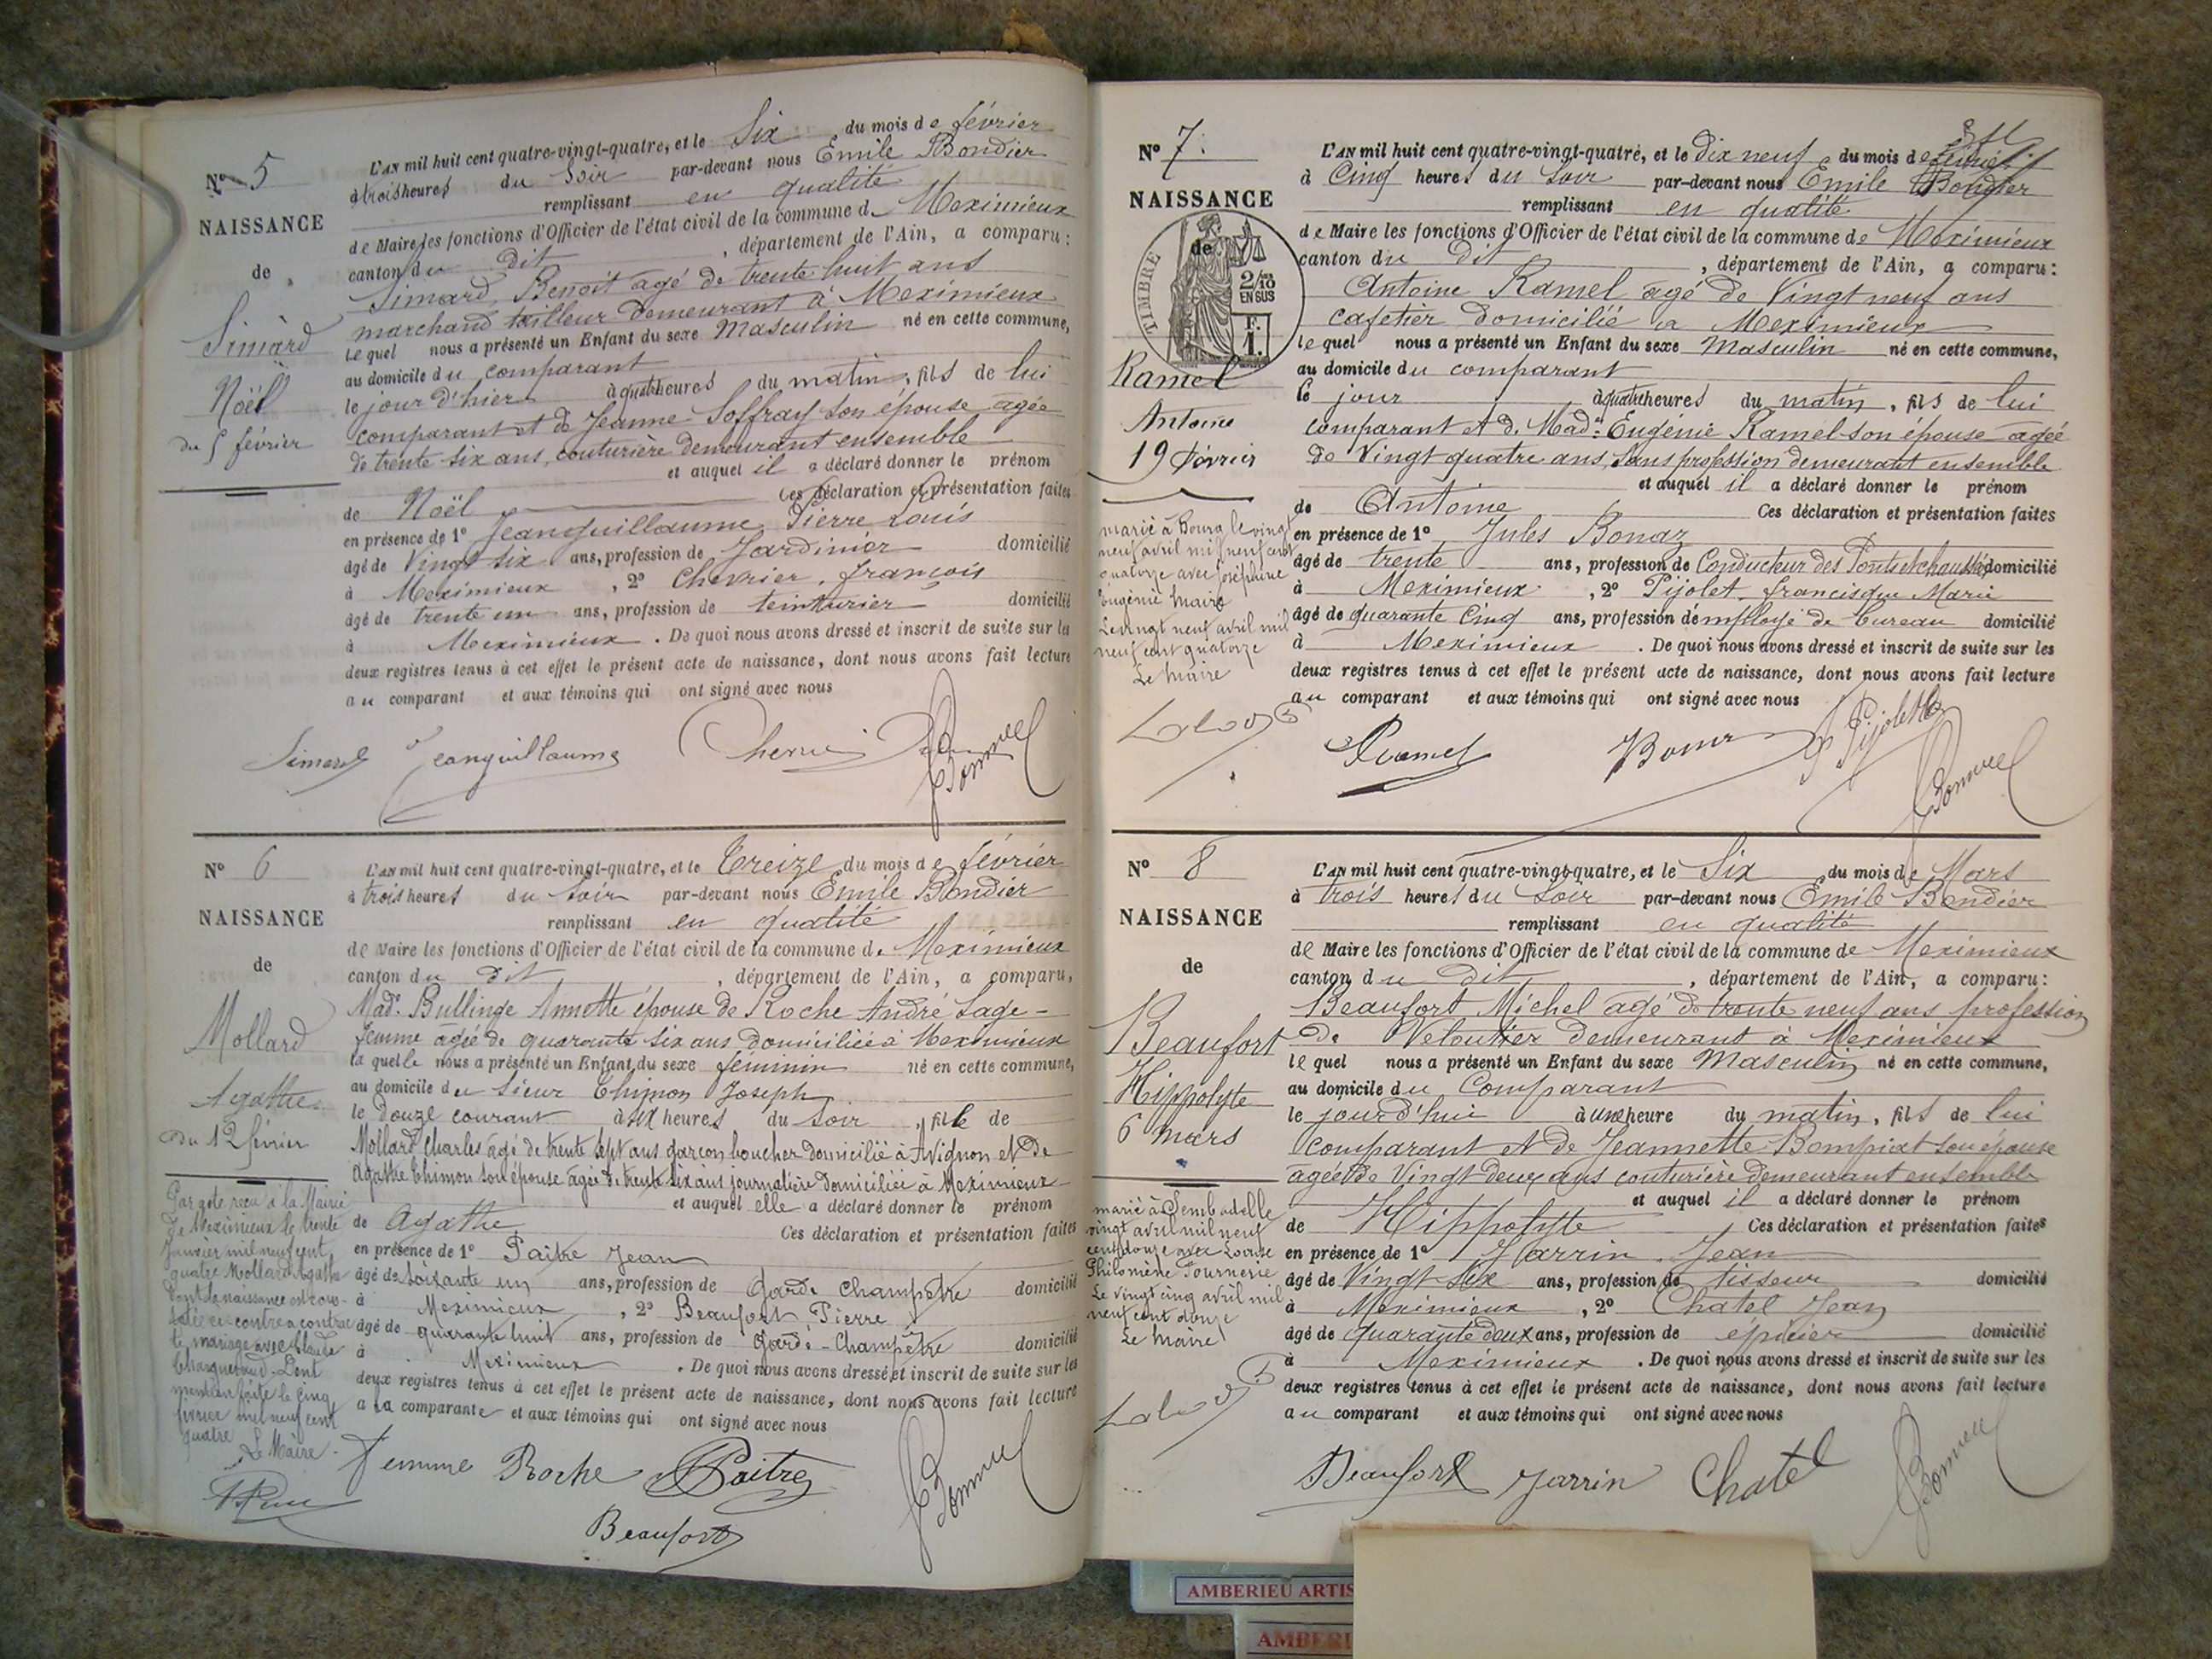 N° 5
NAISSANCE
de
Simard
Noël
du 5 février
L'AN mil huit cent quatre-vingt-quatre, et le Six du mois de février
à trois heures du Soir par-devant nous Emile Bondier
remplissant en qualité
de Maire les fonctions d'Officier de l'état civil de la commune de Meximieux
canton du dit , département de l'Ain, a comparu :
Simard, Benoit agé de trente huit ans
marchand tailleur demeurant à Meximieux
Lequel nous a présenté un Enfant du sexe Masculin né en cette commune,
au domicile du comparant
le jour d'hier à quatre heures du matin, fils de lui
comparant et de Jeanne Soffray son épouse agée
de trente six ans, couturière demeurant ensemble
et auquel il a déclaré donner le prénom
de Noël Ces déclaration et présentation faites
en présence de 1° Jeanguillaume Pierre Louis
âgé de Vingt six ans, profession de Jardinier domicilié
à Meximieux , 2° Chevrier, françois
âgé de trente un ans, profession de teinturier domicilié
à Meximieux . De quoi nous avons dressé et inscrit de suite sur les
deux registres tenus à cet effet le présent acte de naissance, dont nous avons fait lecture
au comparant et aux témoins qui ont signé avec nous
Simard Jeanguillaume
N° 6
NAISSANCE
de
Mollard
Agathe
du 12 février
Par acte reçu à la Mairie
de Meximieux le trente
Janvier mil neuf cent
quatre Mollard Agathe
dont la naissance est cons-
tatée ci-contre a contrac
té mariage avec Claude
Dont
mention faite le cinq
février mil neuf cent
quatre
Le Maire
L'AN mil huit cent quatre-vingt-quatre, et le Treize du mois de février
à trois heures du Soir par-devant nous Emile Bondier
remplissant en qualité
de Maire les fonctions d'Officier de l'état civil de la commune de Meximieux
canton du dit , département de l'Ain, a comparu,
Made Bullinge Annette épouse de Roche André Sage-
femme agée de quarante six ans domiciliée à Meximieux
laquelle nous a présenté un Enfant du sexe féminin né en cette commune,
au domicile du Sieur Thimon Joseph
le douze courant à six heures du soir , fille de
Mollard Charles agé de trente sept ans garçon boucher domicilié à Avignon et de
Agathe Thimon son épouse agée de trente six ans journalière domiciliée à Meximieux
et auquel elle a déclaré donner le prénom
de Agathe Ces déclaration et présentation faites
en présence de 1° Paître Jean
âgé de soixante un ans, profession de Garde Champêtre domicilié
à Meximieux , 2° Beaufort Pierre
âgé de quarante huit ans, profession de Garde-Champêtre domicilié
à Meximieux . De quoi nous avons dressé et inscrit de suite sur les
deux registres tenus à cet effet le présent acte de naissance, dont nous avons fait lecture
a la comparante et aux témoins qui ont signé avec nous
femme Roche Paitre
Beaufort
N° 7
NAISSANCE
de
TIMBRE
2/10
EN SUS
F.
1.
Ramel
Antoine
19 février
marié à Bourg le vingt
neuf avril mil neuf cent
quatorze avec Joséphine
Eugénie Maire
Le vingt neuf avril mil
neuf cent quatorze
Le Maire
L'AN mil huit cent quatre-vingt-quatre, et le Dix neuf du mois de février
à Cinq heures du Soir par-devant nous Emile Bondier
remplissant en qualité
de Maire les fonctions d'Officier de l'état civil de la commune de Meximieux
canton du Dit , département de l'Ain, a comparu :
Antoine Ramel agé de Vingt neuf ans
cafetier domicilié a Meximieux
lequel nous a présenté un Enfant du sexe Masculin né en cette commune,
au domicile du comparant
le jour à quatre heures du matin , fils de lui
comparant et de Made Eugénie Ramel son épouse agée
de Vingt quatre ans, sans profession demeurant ensemble
et auquel il a déclaré donner le prénom
de Antoine Ces déclaration et présentation faites
en présence de 1° Jules Bonaz
âgé de trente ans, profession de Conducteur des Ponts et chaussées domicilié
à Meximieux , 2° Pijolet, francisque Marie
âgé de quarante Cinq ans, profession d'employé de bureau domicilié
à Meximieux . De quoi nous avons dressé et inscrit de suite sur les
deux registres tenus à cet effet le présent acte de naissance, dont nous avons fait lecture
au comparant et aux témoins qui ont signé avec nous
Ramel Pijolet
N° 8
NAISSANCE
de
Beaufort
Hippolyte
6 mars
marié à Sembadelle
vingt avril mil neuf
cent douze avec Louise
Philomène Fournerie
Le vingt cinq avril mil
neuf cent douze
Le Maire
L'AN mil huit cent quatre-vingt-quatre, et le Six du mois de Mars
à trois heures du Soir par-devant nous Emile Bondier
remplissant en qualité
de Maire les fonctions d'Officier de l'état civil de la commune de Meximieux
canton du dit , département de l'Ain, a comparu :
Beaufort Michel agé de trente neuf ans profession
de Veloutier demeurant à Meximieux
lequel nous a présenté un Enfant du sexe Masculin né en cette commune,
au domicile du Comparant
le jourd'hui à une heure du matin, fils de lui
comparant et de Jeannette Bompiat son épouse
agée de Vingt deux ans couturière demeurant ensemble
et auquel il a déclaré donner le prénom
de Hippolyte Ces déclaration et présentation faites
en présence de 1° Jarrin Jean
âgé de Vingt Six ans, profession de tisseur domicilié
à Meximieux , 2° Chatel Jean
âgé de quarante deux ans, profession de épicier domicilié
à Meximieux . De quoi nous avons dressé et inscrit de suite sur les
deux registres tenus à cet effet le présent acte de naissance, dont nous avons fait lecture
au comparant et aux témoins qui ont signé avec nous
Beaufort Jarrin Chatel
AMBERIEU ARTIS
AMBERI